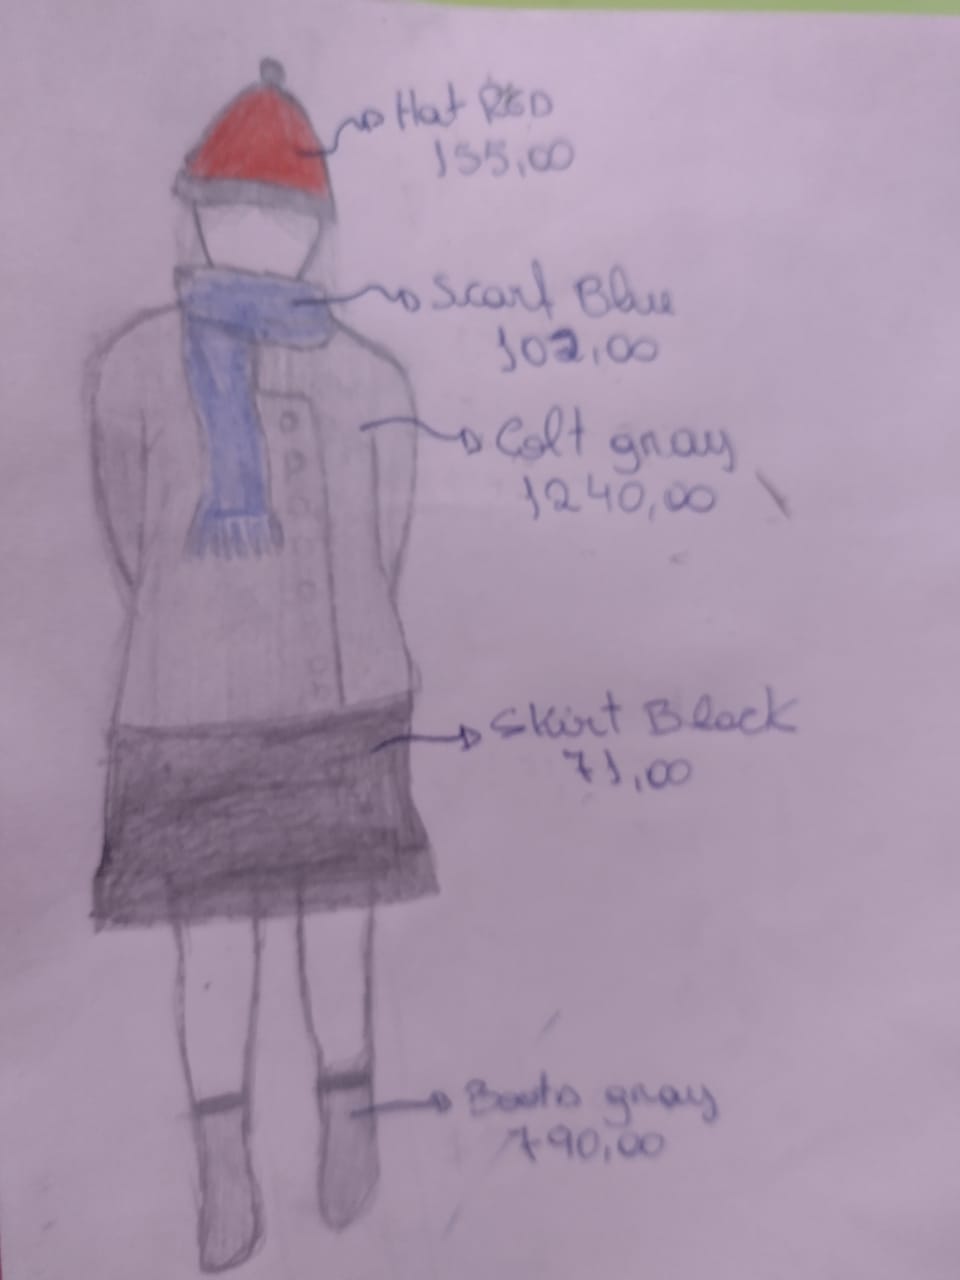 Hat RED
155,00
Scarf Blue
102,00
Colt gray
1240,00
Skirt Black
71,00
Boots gray
790,00